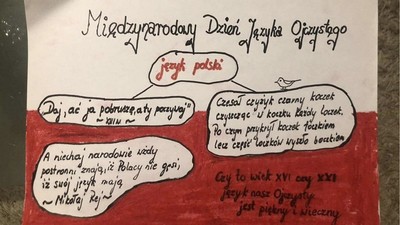 Międzynarodowy Dzień Języka Ojczystego
język polski
"Daj, ać ja pobruszę, a ty poczywaj"
~ XIII w
Czesał czyżyk czarny koczek
czyszcząc w koczku każdy loczek.
Po czym przykrył koczek toczkiem
lecz część loczków wyszła boczkiem
A niechaj narodowie wżdy
postronni znają, iż Polacy nie gęsi,
iż swój język mają
~ Mikołaj Rej ~
Czy to wiek XVI czy XXI
język nasz Ojczysty
jest piękny i wieczny